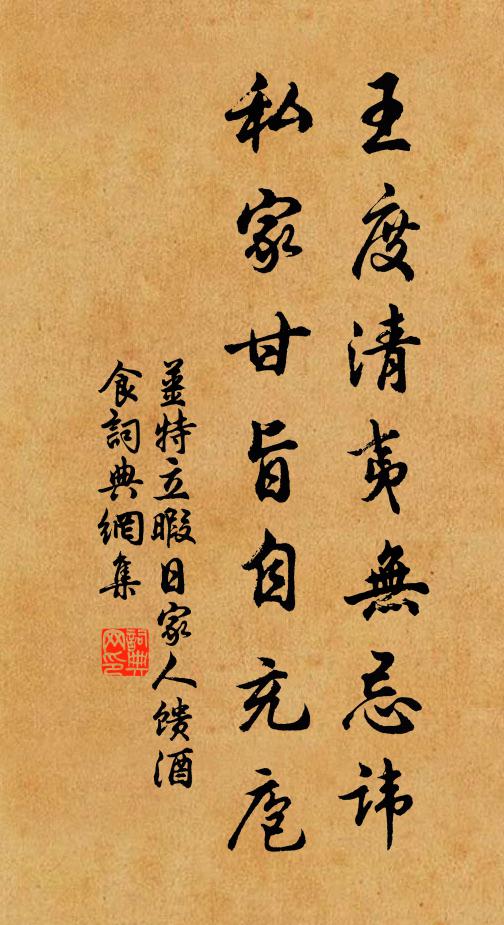 王度清夷無忌諱
私家甘旨自充庖
薑特立暇日家人馈酒
食詞典網集
詞典
网印